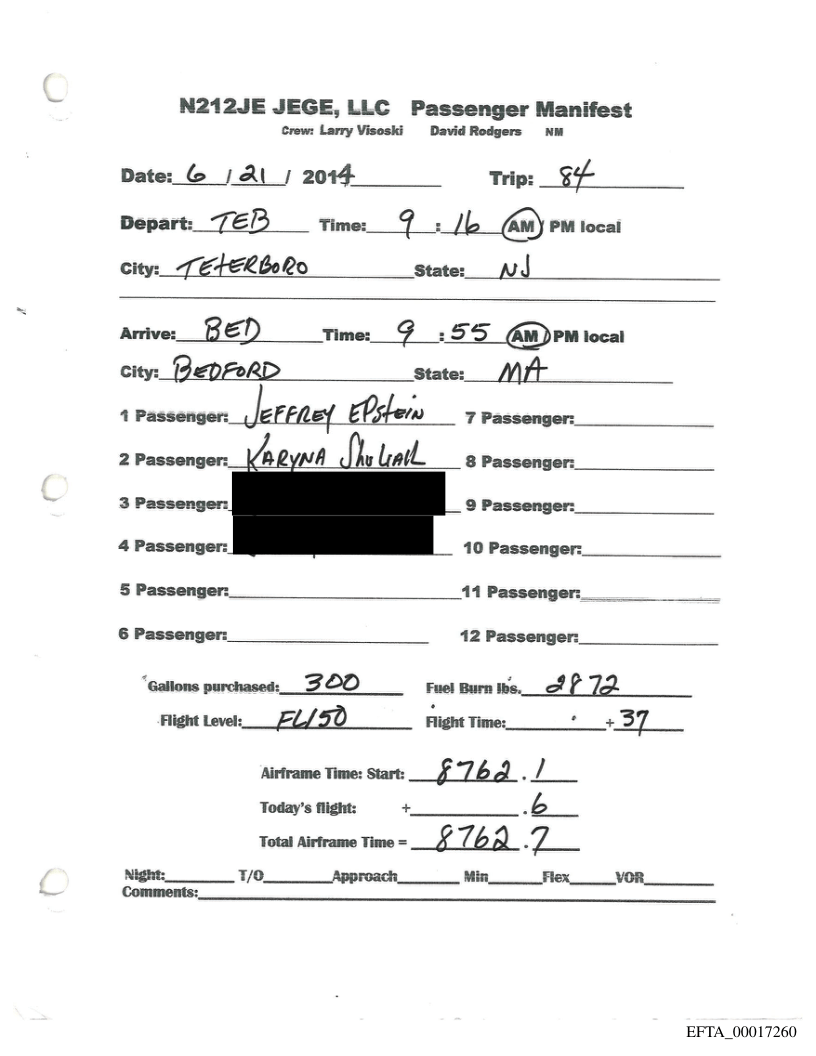 N212JE JEGE, LLC Passenger Manifest
Crew: Larry Visoski David Rodgers NM
Date: 6 / 21 / 2014 Trip: 84
Depart: TEB Time: 9 : 16 AM PM local
City: TETERBORO State: NJ
Arrive: BED Time: 9 : 55 AM PM local
City: BEDFORD State: MA
1 Passenger: JEFFREY EPStEiN 7 Passenger:
2 Passenger: KARYNA ShuliAK 8 Passenger:
3 Passenger: 9 Passenger:
4 Passenger: 10 Passenger:
5 Passenger: 11 Passenger:
6 Passenger: 12 Passenger:
Gallons purchased: 300 Fuel Burn lbs. 2872
Flight Level: FL150 Flight Time: + 37
Airframe Time: Start: 8762.1
Today's flight: + .6
Total Airframe Time = 8762.7
Night: T/O Approach Min Flex VOR
Comments:
EFTA_00017260